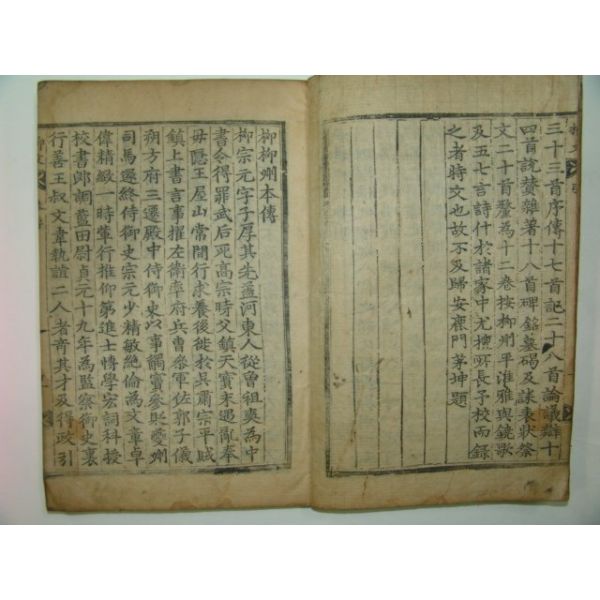 三十三首序傳十七首記二十八首論議辯十
四首說贊雜著十八首碑銘墓碣及誄表狀祭
文二十首釐為十二卷按柳州平淮雅與鐃歌
及五七言詩什於諸家中尤擅所長予校而錄
之者特文也故不及歸安鹿門茅坤題
柳柳州本傳
柳宗元字子厚其先盖河東人從曾祖奭為中
書令得罪武后死高宗時父鎮天寶末遇亂奉
母隱王屋山常間行求養後徙於吳肅宗平賊
鎮上書言事擢左衛率府兵曹參軍佐郭子儀
朔方府三遷殿中侍御史以事觸竇參貶夔州
司馬還終侍御史宗元少精敏絶倫為文章卓
偉精敏一時輩行推仰第進士博學宏詞科授
校書郎調藍田尉貞元十九年為監察御史裏
行善王叔文韋執誼二人者奇其才及得政引